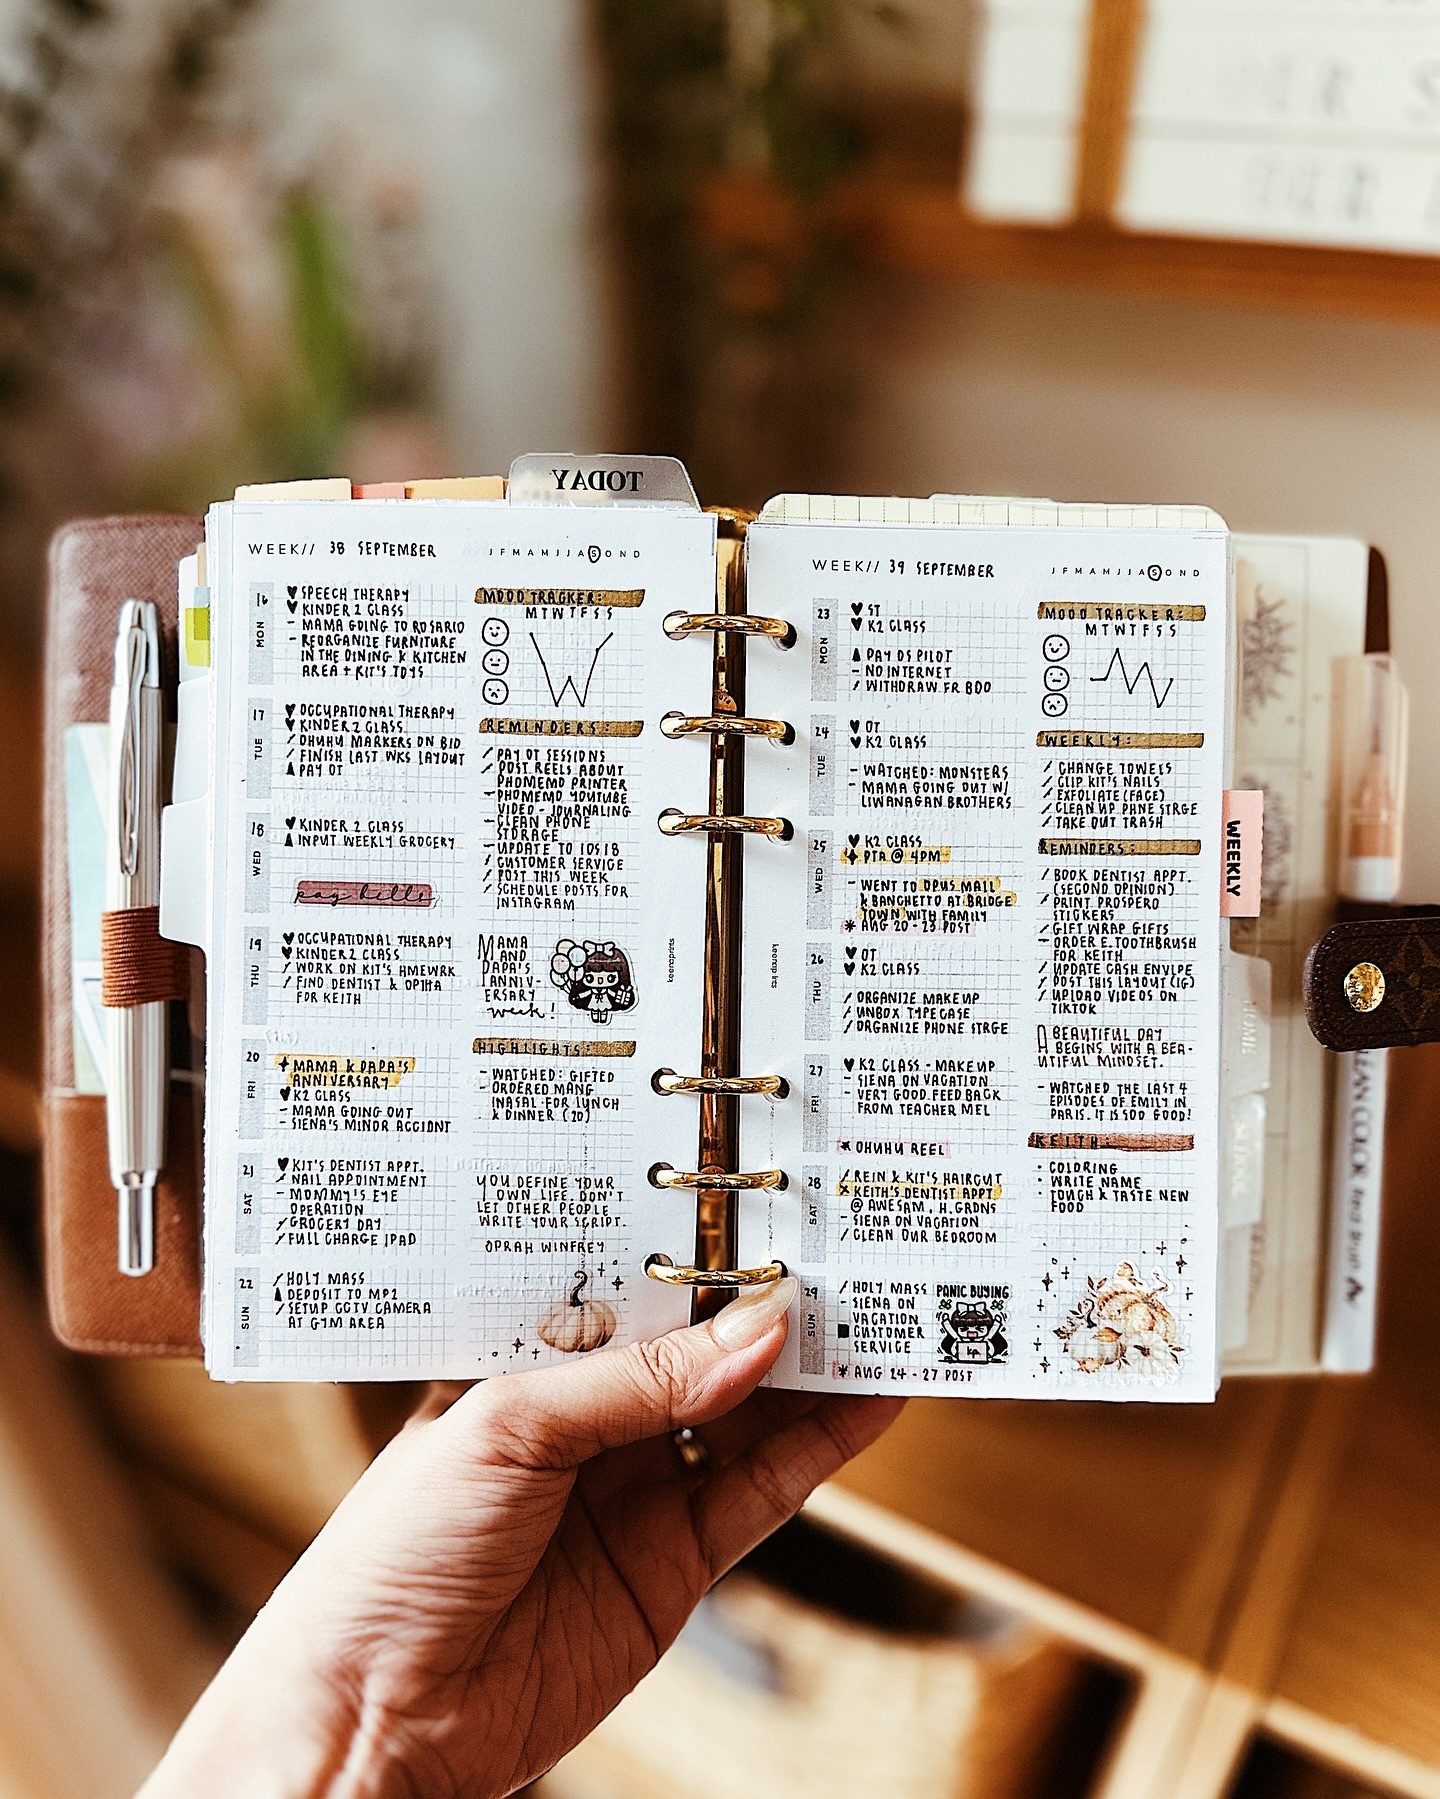 TODAY
WEEK// 38 SEPTEMBER
J F M A M J J A S O N D
16
MON
♥ SPEECH THERAPY
♥ KINDER 2 CLASS
- MAMA GOING TO ROSARIO
- REORGANIZE FURNITURE
IN THE DINING & KITCHEN
AREA + KIT'S TOYS
17
TUE
♥ OCCUPATIONAL THERAPY
♥ KINDER 2 CLASS
/ OHUHU MARKERS ON BID
/ FINISH LAST WKS LAYOUT
▲ PAY OT
18
WED
♥ KINDER 2 CLASS
▲ INPUT WEEKLY GROCERY
pay bills
19
THU
♥ OCCUPATIONAL THERAPY
♥ KINDER 2 CLASS
/ WORK ON KIT'S HMEWRK
/ FIND DENTIST & OPTHA
FOR KEITH
20
FRI
✦ MAMA & PAPA'S
ANNIVERSARY
♥ K2 CLASS
- MAMA GOING OUT
- SIENA'S MINOR ACCIDNT
21
SAT
♥ KIT'S DENTIST APPT.
/ NAIL APPOINTMENT
- MOMMY'S EYE
OPERATION
/ GROCERY DAY
/ FULL CHARGE IPAD
22
SUN
/ HOLY MASS
▲ DEPOSIT TO MP2
/ SETUP CCTV CAMERA
AT GYM AREA
MOOD TRACKER:
M T W T F S S
REMINDERS:
/ PAY OT SESSIONS
/ POST REELS ABOUT
PHOMEMO PRINTER
- PHOMEMO YOUTUBE
VIDEO + JOURNALING
- CLEAN PHONE
STORAGE
- UPDATE TO IOS 18
/ CUSTOMER SERVICE
/ POST THIS WEEK
/ SCHEDULE POSTS FOR
INSTAGRAM
MAMA
AND
PAPA'S
ANNIV-
ERSARY
week!
HIGHLIGHTS:
- WATCHED: GIFTED
- ORDERED MANG
INASAL FOR LUNCH
& DINNER (20)
YOU DEFINE YOUR
OWN LIFE. DON'T
LET OTHER PEOPLE
WRITE YOUR SCRIPT.
OPRAH WINFREY
keenoprints
WEEK// 39 SEPTEMBER
J F M A M J J A S O N D
23
MON
♥ ST
♥ K2 CLASS
▲ PAY DS PILOT
- NO INTERNET
/ WITHDRAW FR BDO
24
TUE
♥ OT
♥ K2 CLASS
- WATCHED: MONSTERS
- MAMA GOING OUT W/
LIWANAGAN BROTHERS
25
WED
♥ K2 CLASS
✦ PTA @ 4PM
- WENT TO OPUS MALL
& BANCHETTO AT BRIDGE
TOWN WITH FAMILY
* AUG 20 - 23 POST
26
THU
♥ OT
♥ K2 CLASS
/ ORGANIZE MAKEUP
/ UNBOX TYPECASE
/ ORGANIZE PHONE STRGE
27
FRI
♥ K2 CLASS - MAKEUP
- SIENA ON VACATION
- VERY GOOD FEEDBACK
FROM TEACHER MEL
* OHUHU REEL
28
SAT
/ REIN & KIT'S HAIRCUT
x KEITH'S DENTIST APPT
@ AWESAM, H. GRDNS
- SIENA ON VACATION
/ CLEAN OUR BEDROOM
29
SUN
/ HOLY MASS
- SIENA ON
VACATION
■ CUSTOMER
SERVICE
* AUG 24 - 27 POST
PANIC BUYING
MOOD TRACKER:
M T W T F S S
WEEKLY:
/ CHANGE TOWELS
/ CLIP KIT'S NAILS
/ EXFOLIATE (FACE)
/ CLEAN UP PHNE STRGE
/ TAKE OUT TRASH
REMINDERS:
/ BOOK DENTIST APPT.
(SECOND OPINION)
/ PRINT PROSPERO
STICKERS
/ GIFT WRAP GIFTS
- ORDER E.TOOTHBRUSH
FOR KEITH
/ UPDATE CASH ENVLPE
/ POST THIS LAYOUT (IG)
/ UPLOAD VIDEOS ON
TIKTOK
A BEAUTIFUL DAY
BEGINS WITH A BEA-
UTIFUL MINDSET.
- WATCHED THE LAST 4
EPISODES OF EMILY IN
PARIS. IT IS SOO GOOD!
KEITH:
· COLORING
· WRITE NAME
· TOUGH & TASTE NEW
FOOD
WEEKLY
HOME